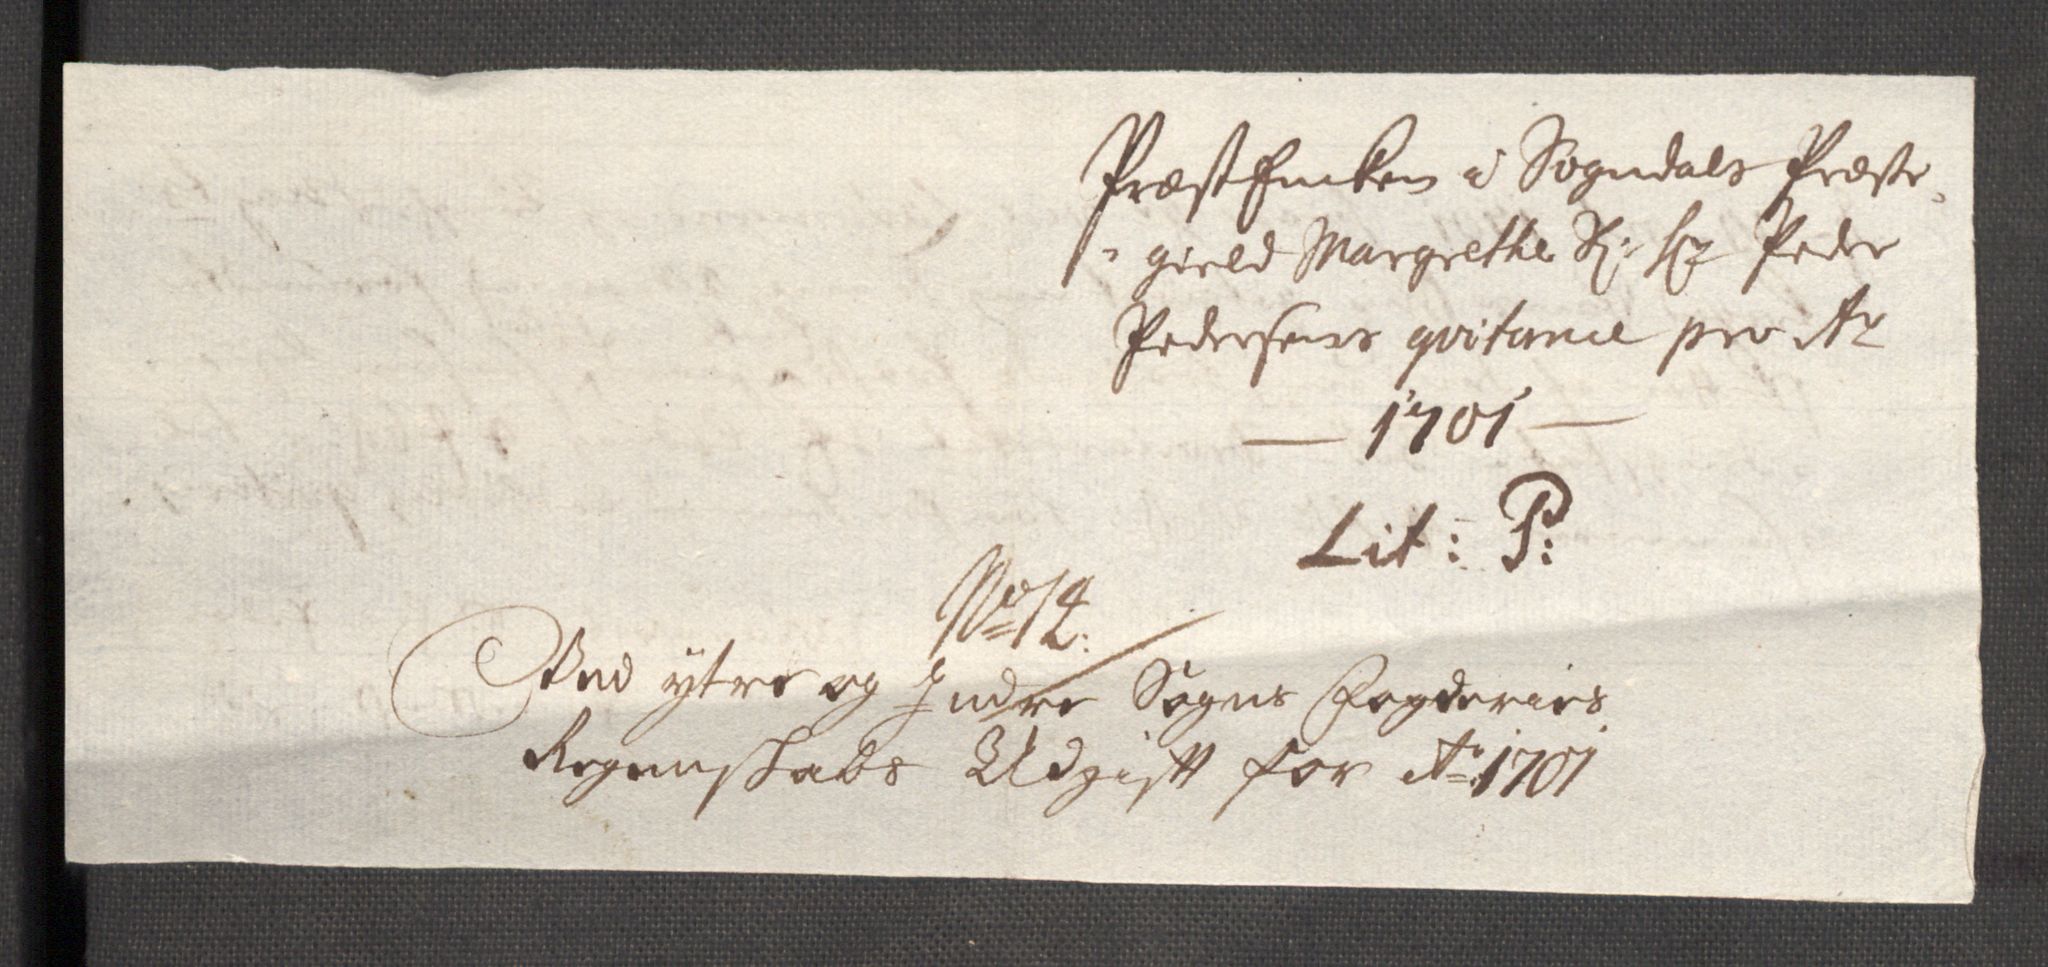 Præst Enken i Sogndals Præste-
- gield Margrethe Sl: Hr Peder
Pedersens qvitance pro Ao
— 1701 —
Lit: P:
No 12:
Ved ytre og Indre Sogns Fogderies
Regenskabs Udgift for Ao 1701